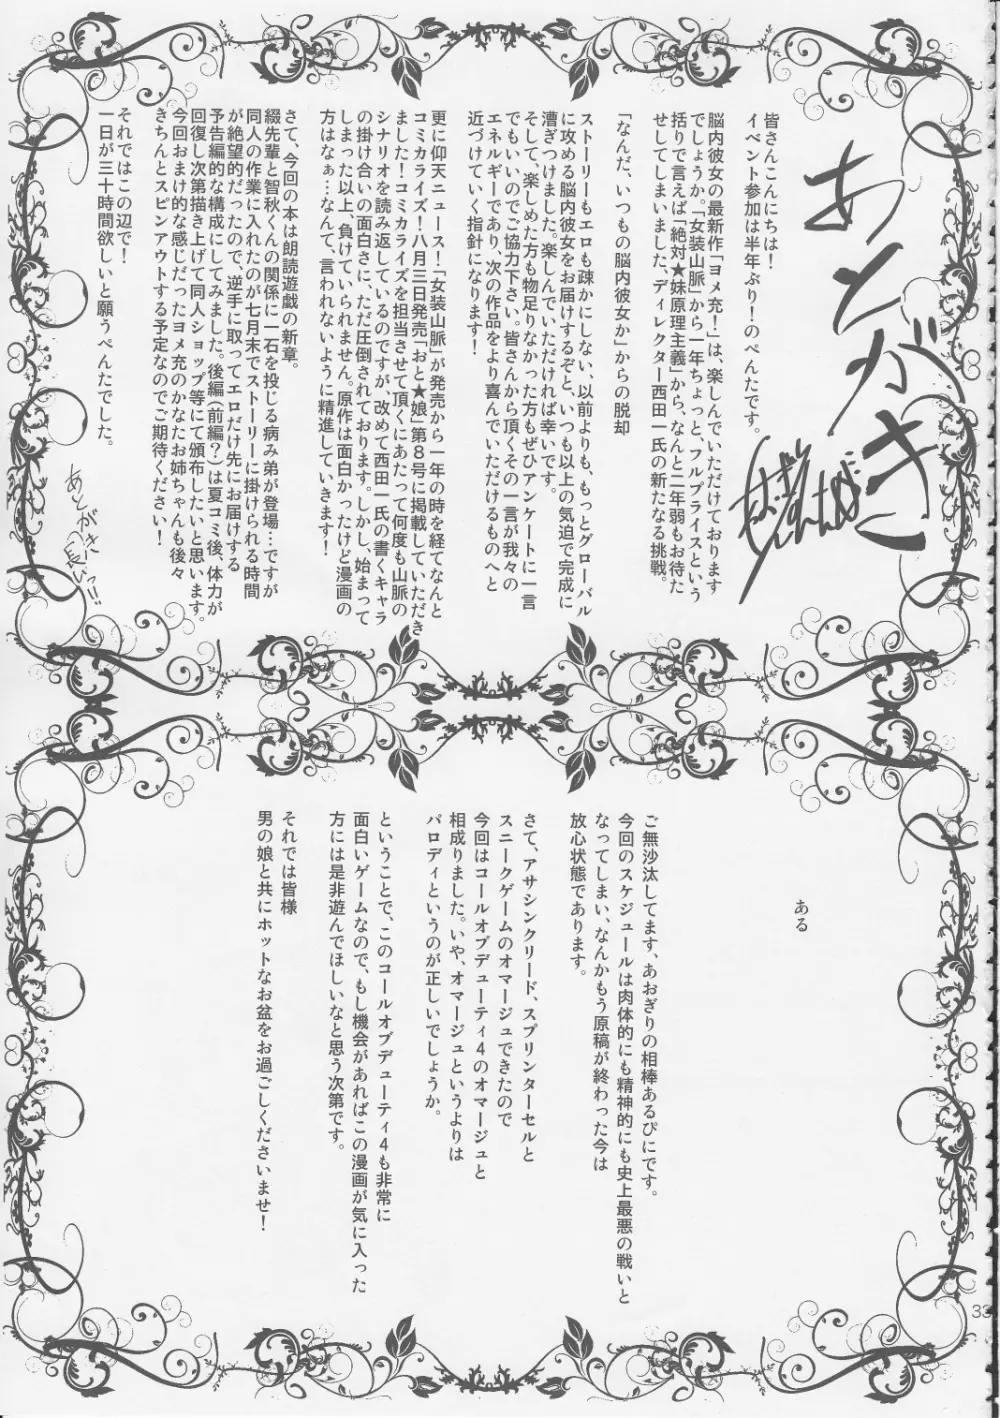 あとがき
皆さんこんにちは！
イベント参加は半年ぶり！のぺんたです。
脳内彼女の最新作「ヨメ充！」は、楽しんでいただけております
でしょうか。「女装山脈」から一年ちょっと、フルプライスという
括りで言えば「絶対★妹原理主義」から、なんと二年弱もお待た
せしてしまいました、ディレクター西田一氏の新たなる挑戦。
「なんだ、いつもの脳内彼女か」からの脱却
ストーリーもエロも疎かにしない、以前よりも、もっとグローバル
に攻める脳内彼女をお届けするぞと、いつも以上の気迫で完成に
漕ぎつけました。楽しんでいただければ幸いです。
そして、楽しめた方も物足りなかった方もぜひアンケートに一言
でもいいのでご協力下さい。皆さんから頂くその一言が我々の
エネルギーであり、次の作品をより喜んでいただけるものへと
近づけていく指針になります！
更に仰天ニュース！「女装山脈」が発売から一年の時を経てなんと
コミカライズ！八月三日発売「おと★娘」第８号に掲載していただき
ました！コミカライズを担当させて頂くにあたって何度も山脈の
シナリオを読み返しているのですが、改めて西田一氏の書くキャラ
の掛け合いの面白さに、ただただ圧倒されております。しかし、始まって
しまった以上、負けていられません。原作は面白かったけど漫画の
方はなぁ…なんて、言われないように精進していきます！
さて、今回の本は朗読遊戯の新章。
綴先輩と智秋くんの関係に一石を投じる病み弟が登場…ですが
同人の作業に入れたのが七月末でストーリーに掛けられる時間
が絶望的だったので、逆手に取ってエロだけ先にお届けする
予告編的な構成にしてみました。後編（前編？）は夏コミ後、体力が
回復し次第描き上げて同人ショップ等にて頒布したいと思います。
今回おまけ的な感じだったヨメ充のかなたお姉ちゃんも後々
きちんとスピンアウトする予定なのでご期待ください！
それではこの辺で！
一日が三十時間欲しいと願うぺんたでした。
あとがき
長いっ!!
ある
ご無沙汰してます、あおぎりの相棒あるぴにです。
今回のスケジュールは肉体的にも精神的にも史上最悪の戦いと
なってしまい、なんかもう原稿が終わった今は
放心状態であります。
さて、アサシンクリード、スプリンターセルと
スニークゲームのオマージュできたので
今回はコールオブデューティ４のオマージュと
相成りました。いや、オマージュというよりは
パロディというのが正しいでしょうか。
ということで、このコールオブデューティ４も非常に
面白いゲームなので、もし機会があればこの漫画が気に入った
方には是非遊んでほしいなと思う次第です。
それでは皆様
男の娘と共にホットなお盆をお過ごしくださいませ！
33